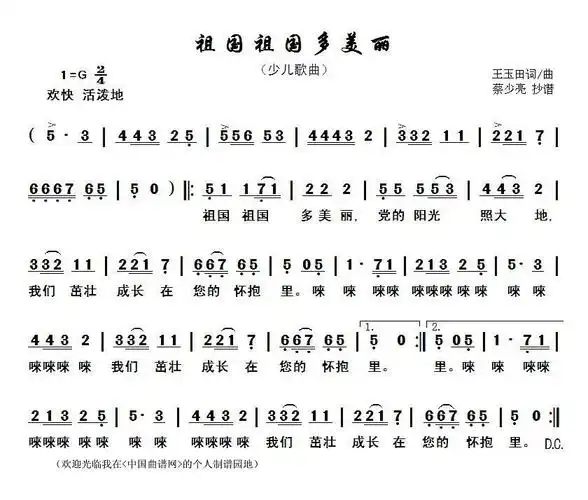 祖国祖国多美丽
(少儿歌曲)
1=G 2/4
王玉田词/曲
欢快 活泼地
蔡少亮 抄谱
( 5· 3 | 443 25 | 5556 53 | 4443 2 | 332 11 | 221 7 |
6667 65 | 5 0 ) |: 51 171 | 2 2 2 | 55 553 | 443 2 |
祖国 祖国 多美丽, 党的 阳光 照大 地,
332 11 | 221 7 | 667 65 | 5 05 | 1· 71 | 2213 25 | 5· 3 |
我们 茁壮 成长 在 您的 怀抱 里。唻 唻 唻唻 唻唻唻唻 唻唻 唻 唻
443 2 | 332 11 | 221 7 | 667 65 | 1. 5 0 :| 2. 5 05 | 1· 71 |
唻唻唻 唻 我们 茁壮 成长 在 您的 怀抱 里。 里。唻 唻 唻唻
2213 25 | 5· 3 | 4443 2 | 332 11 | 221 7 | 667 65 | 5 0 :|
唻唻唻唻 唻唻 唻 唻 唻唻唻唻 唻 我们 茁壮 成长 在 您的 怀抱 里。 D.C.
(欢迎光临我在<中国曲谱网>的个人制谱园地)